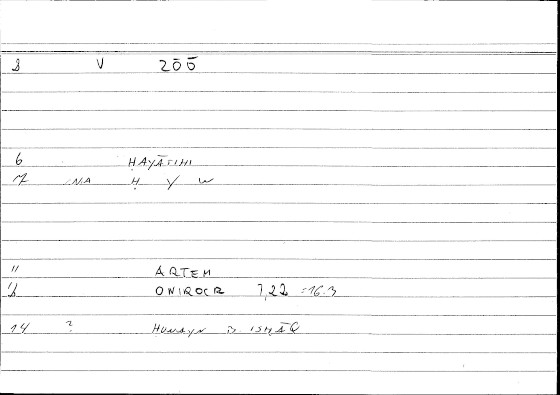 V 200
6 HAYĀTIHI
7 NA Ḥ Y W
11 ARTEM
ONIROCR 1,22 :16.3
14 ? HUNAYN B. ISḤĀQ